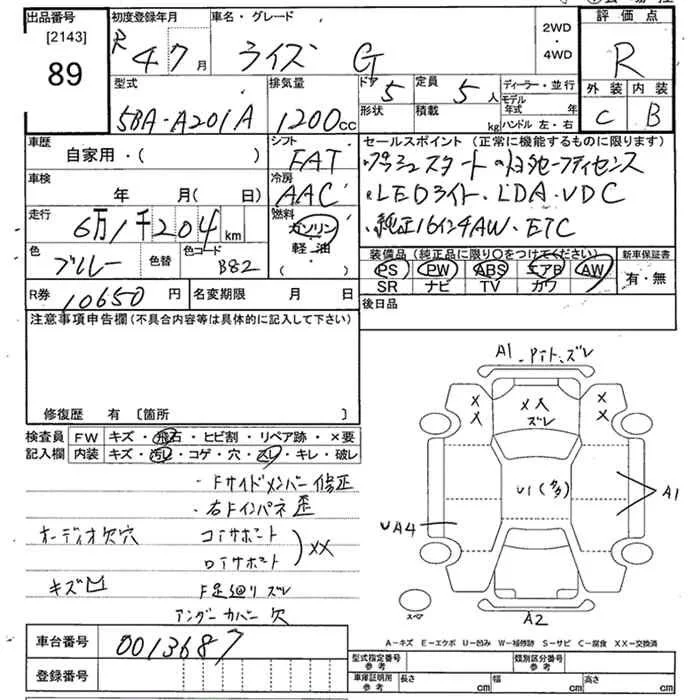 出品番号 [2143] 89
初度登録年月 R 4 7月
車名・グレード ライズ G
2WD・4WD
評価点 R
外装 C 内装 B
型式 5BA-A201A
排気量 1200cc
ドア 5
形状
定員 5人
積載 kg
ディーラー・並行
モデル年式 年
ハンドル 左・右
車歴 自家用・( )
シフト FAT
車検 年 月( 日)
冷房 AAC
走行 6万1千204km
燃料 ガソリン・軽油・( )
色 ブルー 色替 色コード B82
R券 10650円 名変期限 月 日
セールスポイント (正常に機能するものに限ります)
・プッシュスタート
・LEDライト・LDA・VDC
・純正16インチAW・ETC
装備品 (純正品に限り〇をつけてください)
PS PW ABS エアB AW
SR ナビ TV カワ
新車保証書 有・無
後日品
注意事項申告欄 (不具合内容等は具体的に記入して下さい)
修復歴 有 [箇所 ]
検査員記入欄
FW キズ・飛石・ヒビ割・リペア跡・×要
内装 キズ・汚レ・コゲ・穴・スレ・キレ・破レ
・Fサイドメンバー修正
・右Fインパネ歪
オーディオ欠穴
コアサポート
ロアサポート
XX
キズ凹
ズレ
アンダーカバー欠
A1
ズレ
××
××
×
ズレ
U1
A1
UA4
スペア
A2
A-キズ E-エクボ U-凹み W-補修跡 S-サビ C-腐食 XX-交換済
車台番号 0013687
登録番号
型式指定番号 参考
類別区分番号 参考
車庫証明用 参考 長さ cm 幅 cm 高さ cm